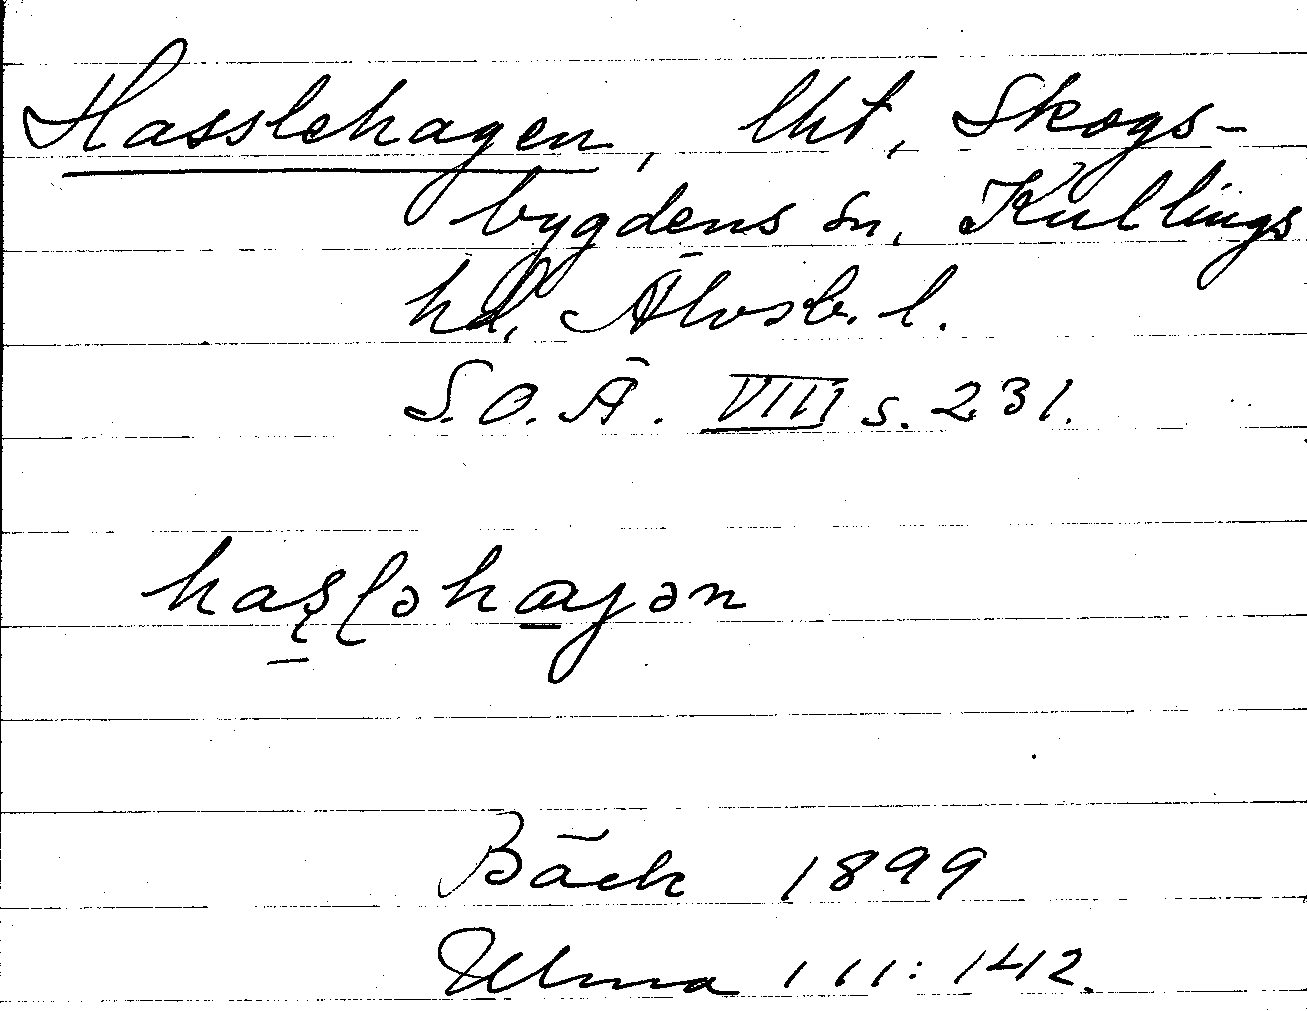 Hasslehagen, lht, Skogs-
bygdens sn, Kullings
hd, Älvsb. l.
S.O.Ä. VIII s. 231.
haʂɭəhaɡən
Bäck 1899
Ulma 111:142.